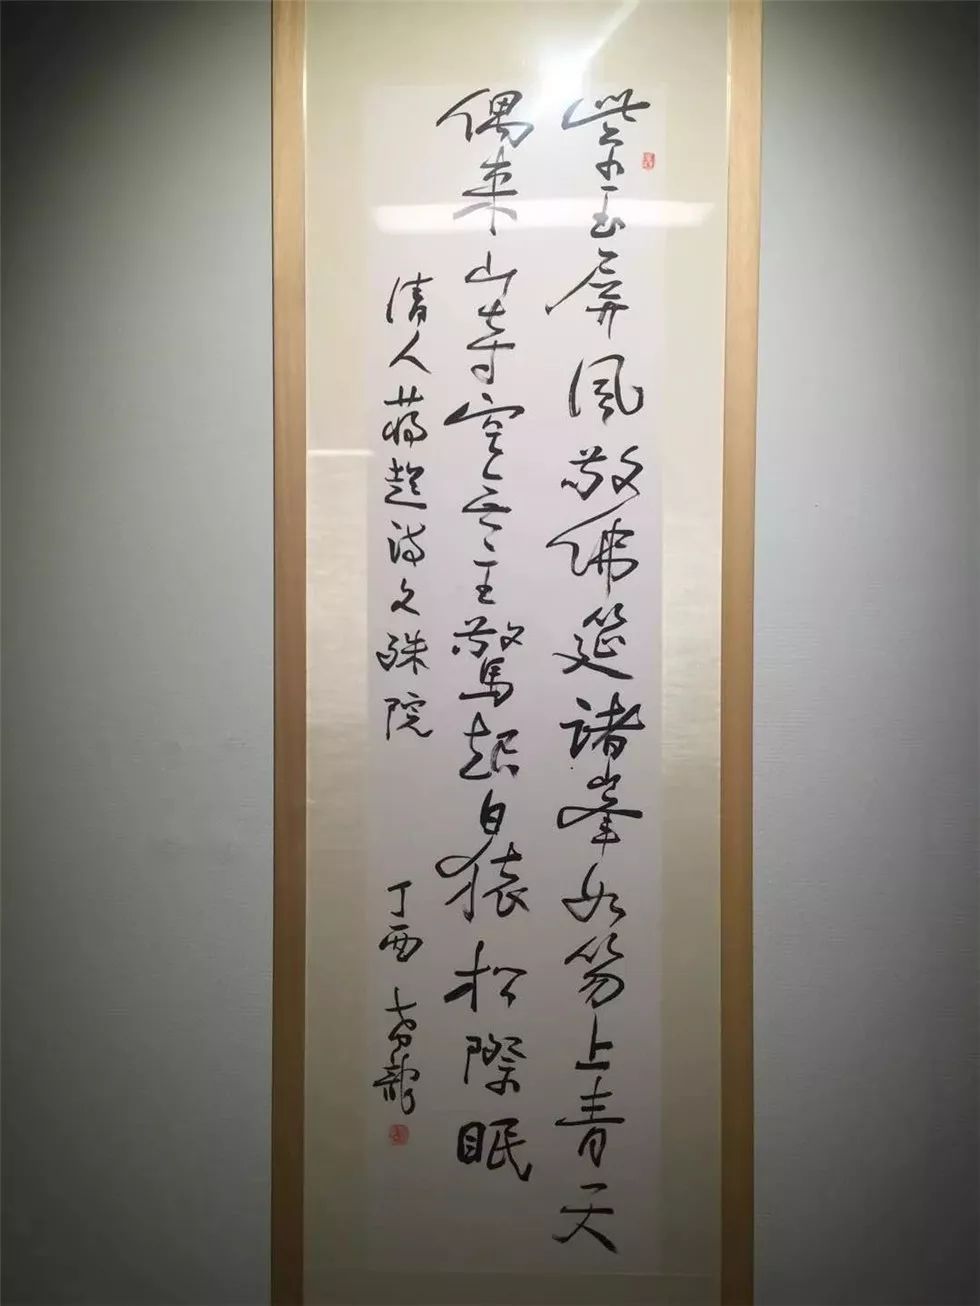 紫玉屏風敞佛筵諸峯如笏上青天
偶来山寺空无主驚起白猿松際眠
清人蒋超诗文殊院
丁酉 龍